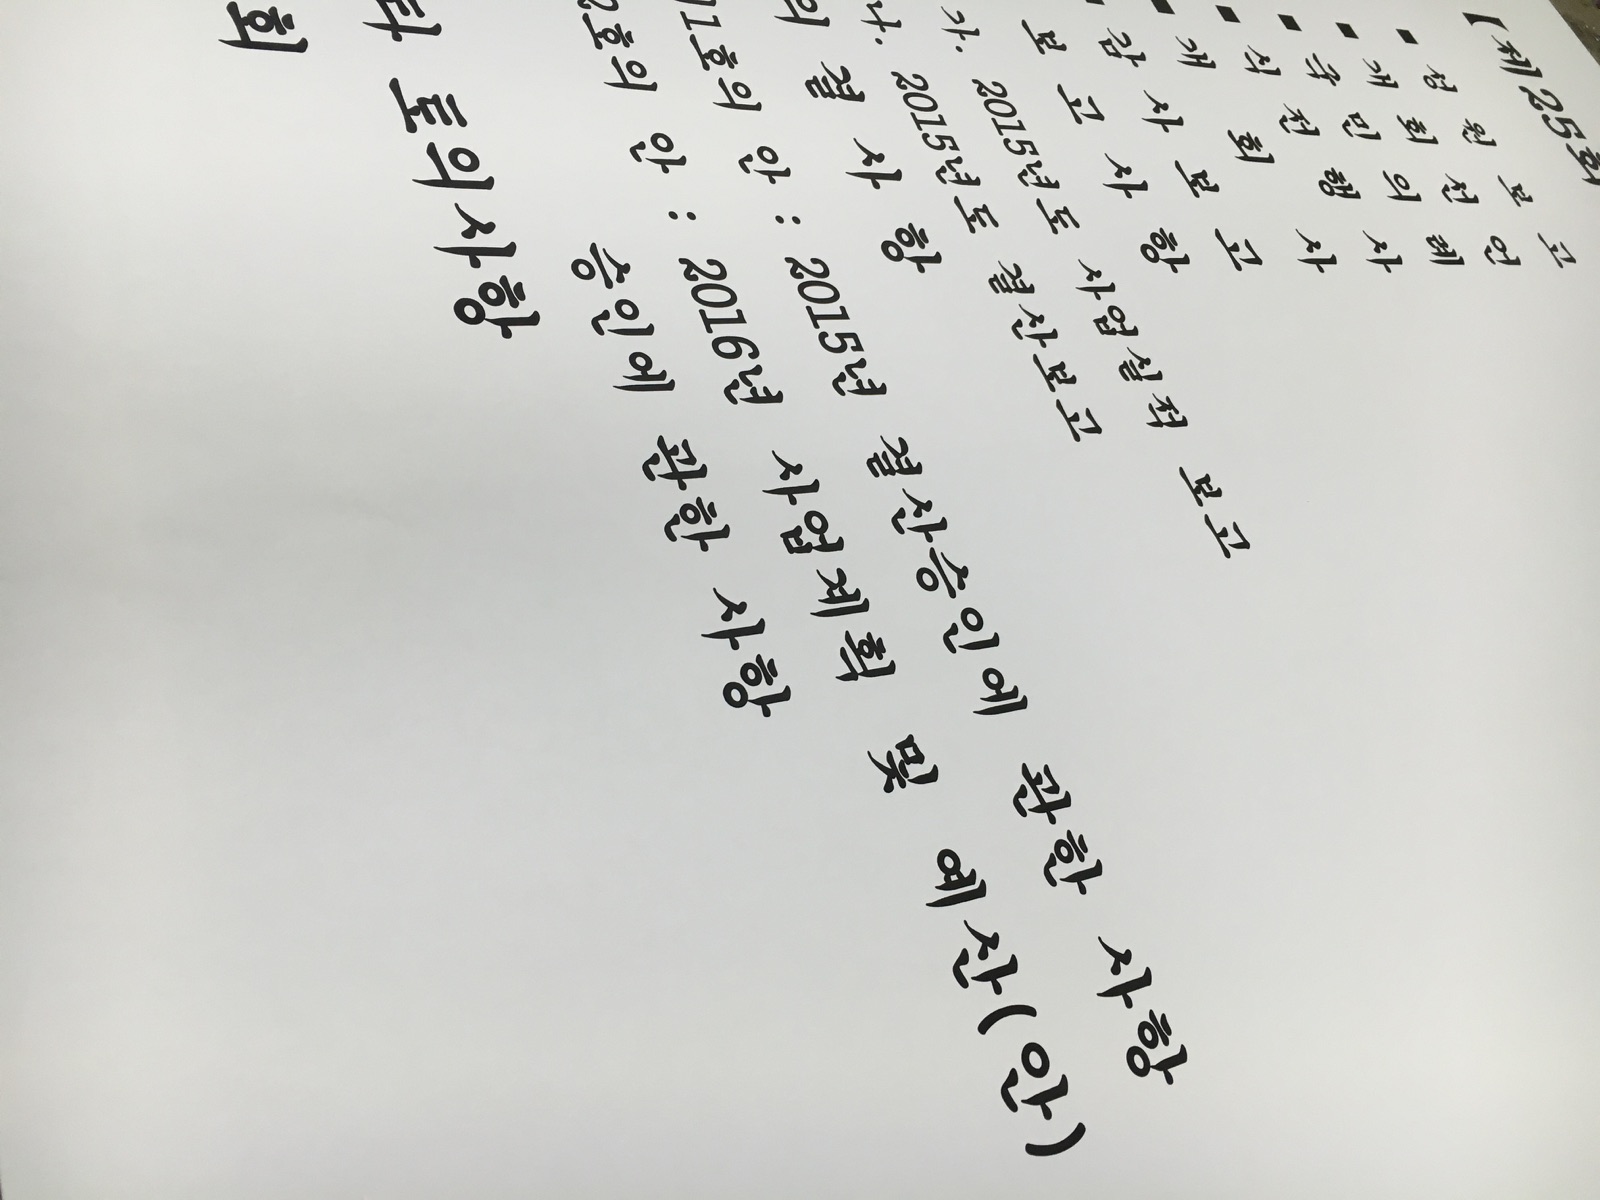 【제25회
▪ 성 원 보 고
▪ 개 회 선 언
▪ 국 민 의 례
▪ 식 전 행 사
개 회 사
감 사 보 고
보 고 사 항
가. 2015년도 사업실적 보고
나. 2015년도 결산보고
의 결 사 항
1호의 안 : 2015년 결산승인에 관한 사항
2호의 안 : 2016년 사업계획 및 예산(안)
승인에 관한 사항
타 토의사항
회